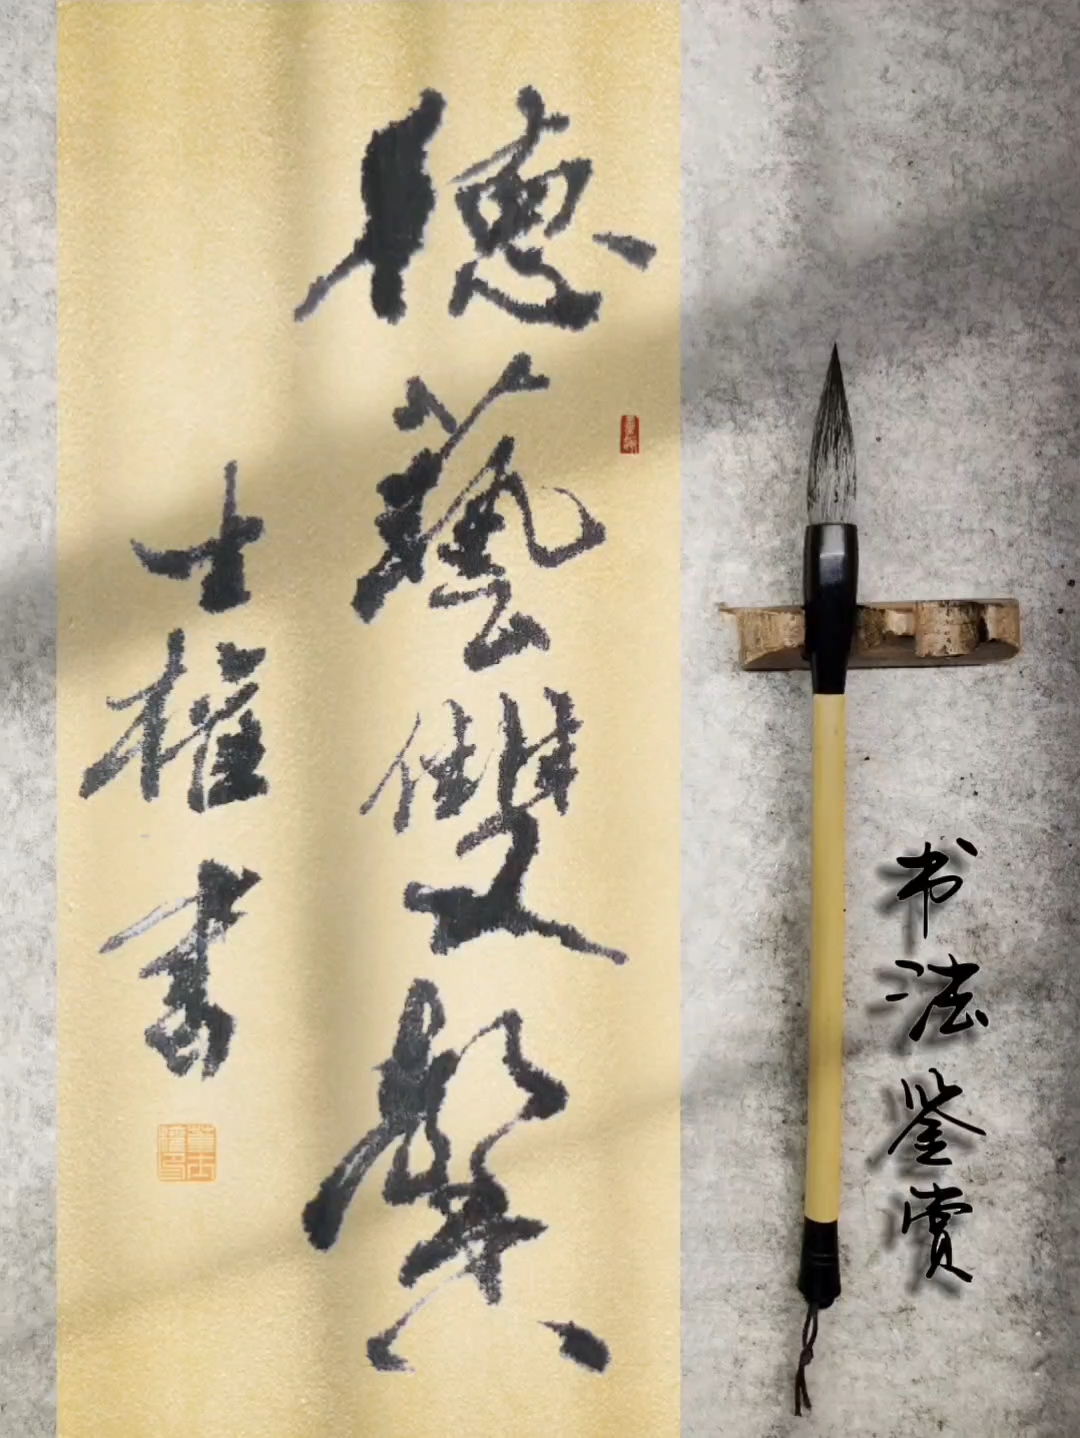 德藝雙馨
士權書
书法鉴赏